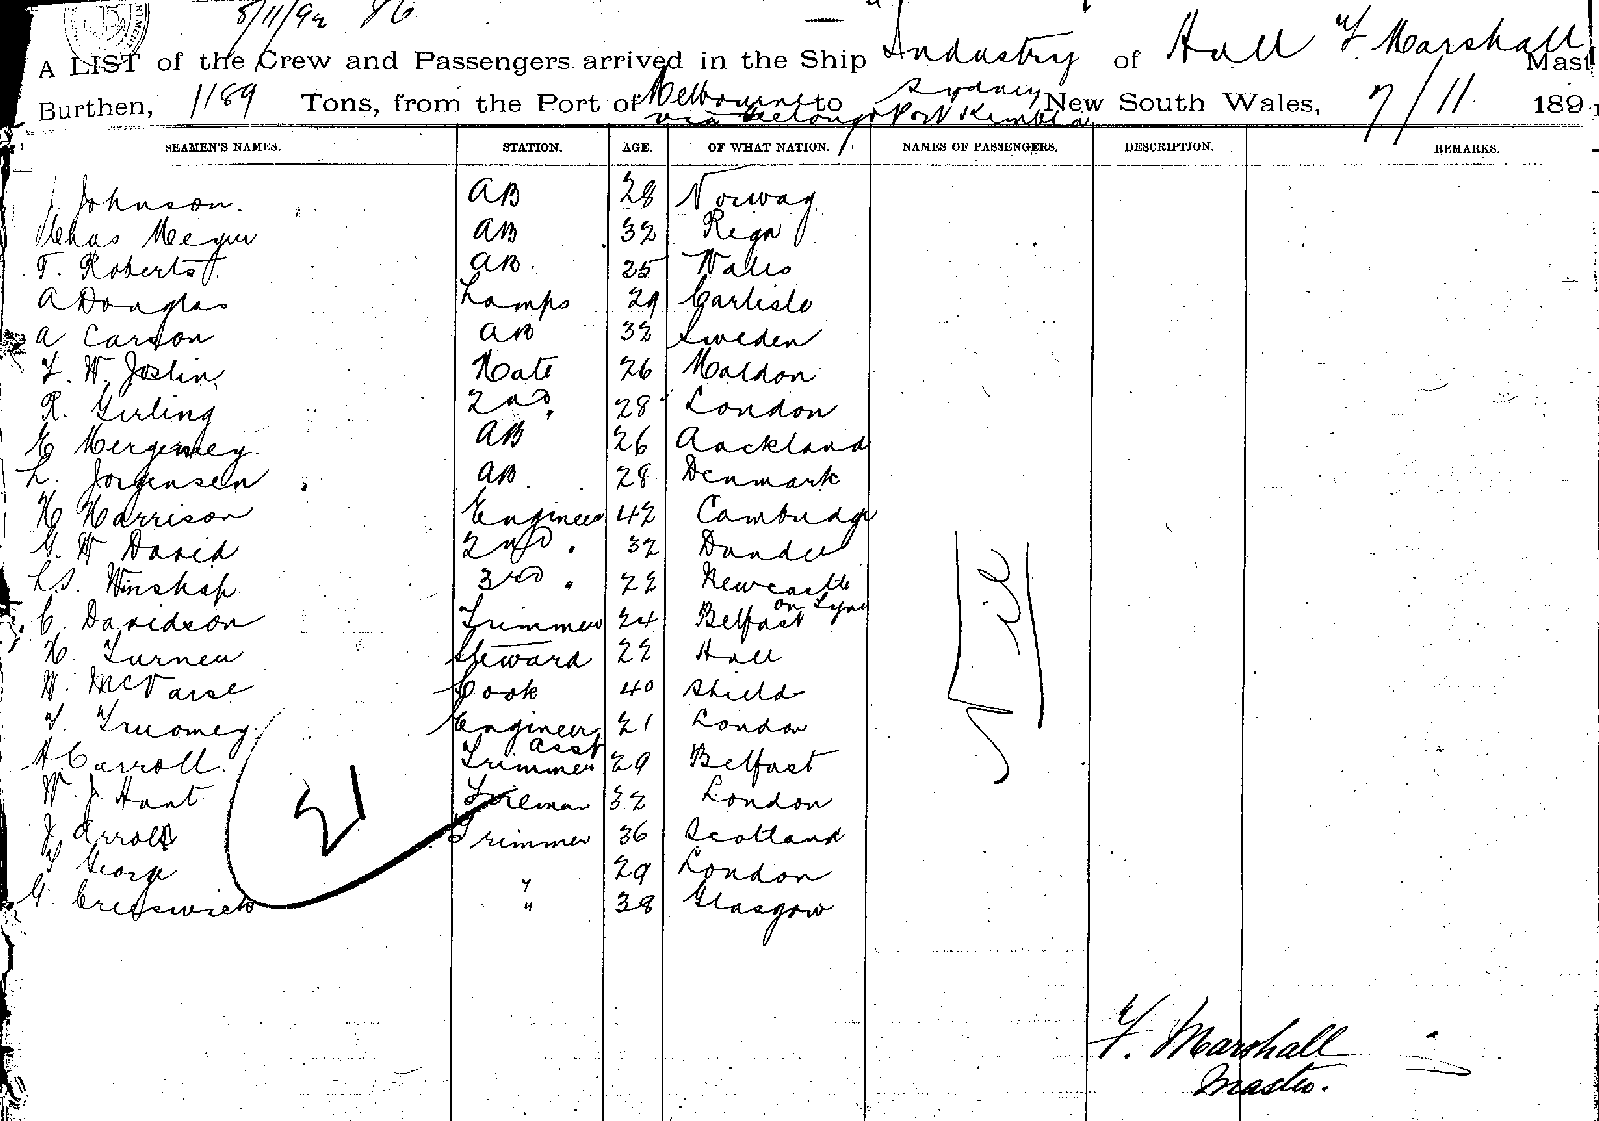 8/11/92 86
A LIST of the Crew and Passengers arrived in the Ship Industry of Hull F Marshall Mast
Burthen, 1189 Tons, from the Port of Melbourne to Sydney New South Wales, 7/11 189
via Geelong Port Kembla
SEAMEN'S NAMES. STATION. AGE. OF WHAT NATION. NAMES OF PASSENGERS. DESCRIPTION. REMARKS.
J Johnson. AB 28 Norway
Chas Meyer AB 32 Riga
T. Roberts AB. 25 Wales
A Douglas Lamps 29 Carlisle
A Carson AB 32 Sweden
F. W. Joslin Mate 26 Maldon
R. Girling 2nd 28 London
E AB 26 Auckland
L. Jorgensen AB. 28 Denmark
H Harrison Engineer 42 Cambridge
G. W David 2nd " 32 Dundee
Winship 3rd " 22 Newcastle
on Tyne
C. Davidson Trimmer 24 Belfast
H. Turner Steward 22 Hull
W. Cook 40 Shield
T. Engineers 21 London
asst
A Carroll Trimmer 29 Belfast
W. J. Hunt Fireman 32 London
J Arrold Trimmer 36 Scotland
George " 29 London
G. Creswick " 38 Glasgow
21
Nil
F. Marshall
Master.